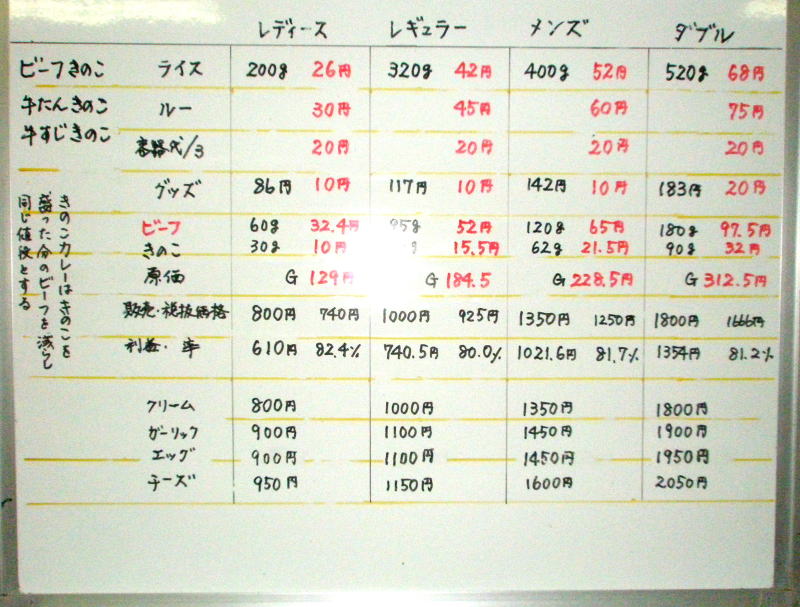 レディース レギュラー メンズ ダブル
ビーフきのこ ライス 200g 26円 320g 42円 400g 52円 520g 68円
牛たんきのこ ルー 30円 45円 60円 75円
牛すじきのこ 容器代/3 20円 20円 20円 20円
グッズ 86円 10円 117円 10円 142円 10円 183円 20円
ビーフ 60g 32.4円 95g 52円 120g 65円 180g 97.5円
きのこ 30g 10円 g 15.5円 62g 21.5円 90g 32円
原価 G 129円 G 184.5 G 228.5円 G 312.5円
販売・税抜価格 800円 740円 1000円 925円 1350円 1250円 1800円 1666円
利益・率 610円 82.4% 740.5円 80.0% 1021.6円 81.7% 1354円 81.2%
きのこカレーはきのこを
盛った分のビーフを減らし
同じ値段とする
クリーム 800円 1000円 1350円 1800円
ガーリック 900円 1100円 1450円 1900円
エッグ 900円 1100円 1450円 1950円
チーズ 950円 1150円 1600円 2050円